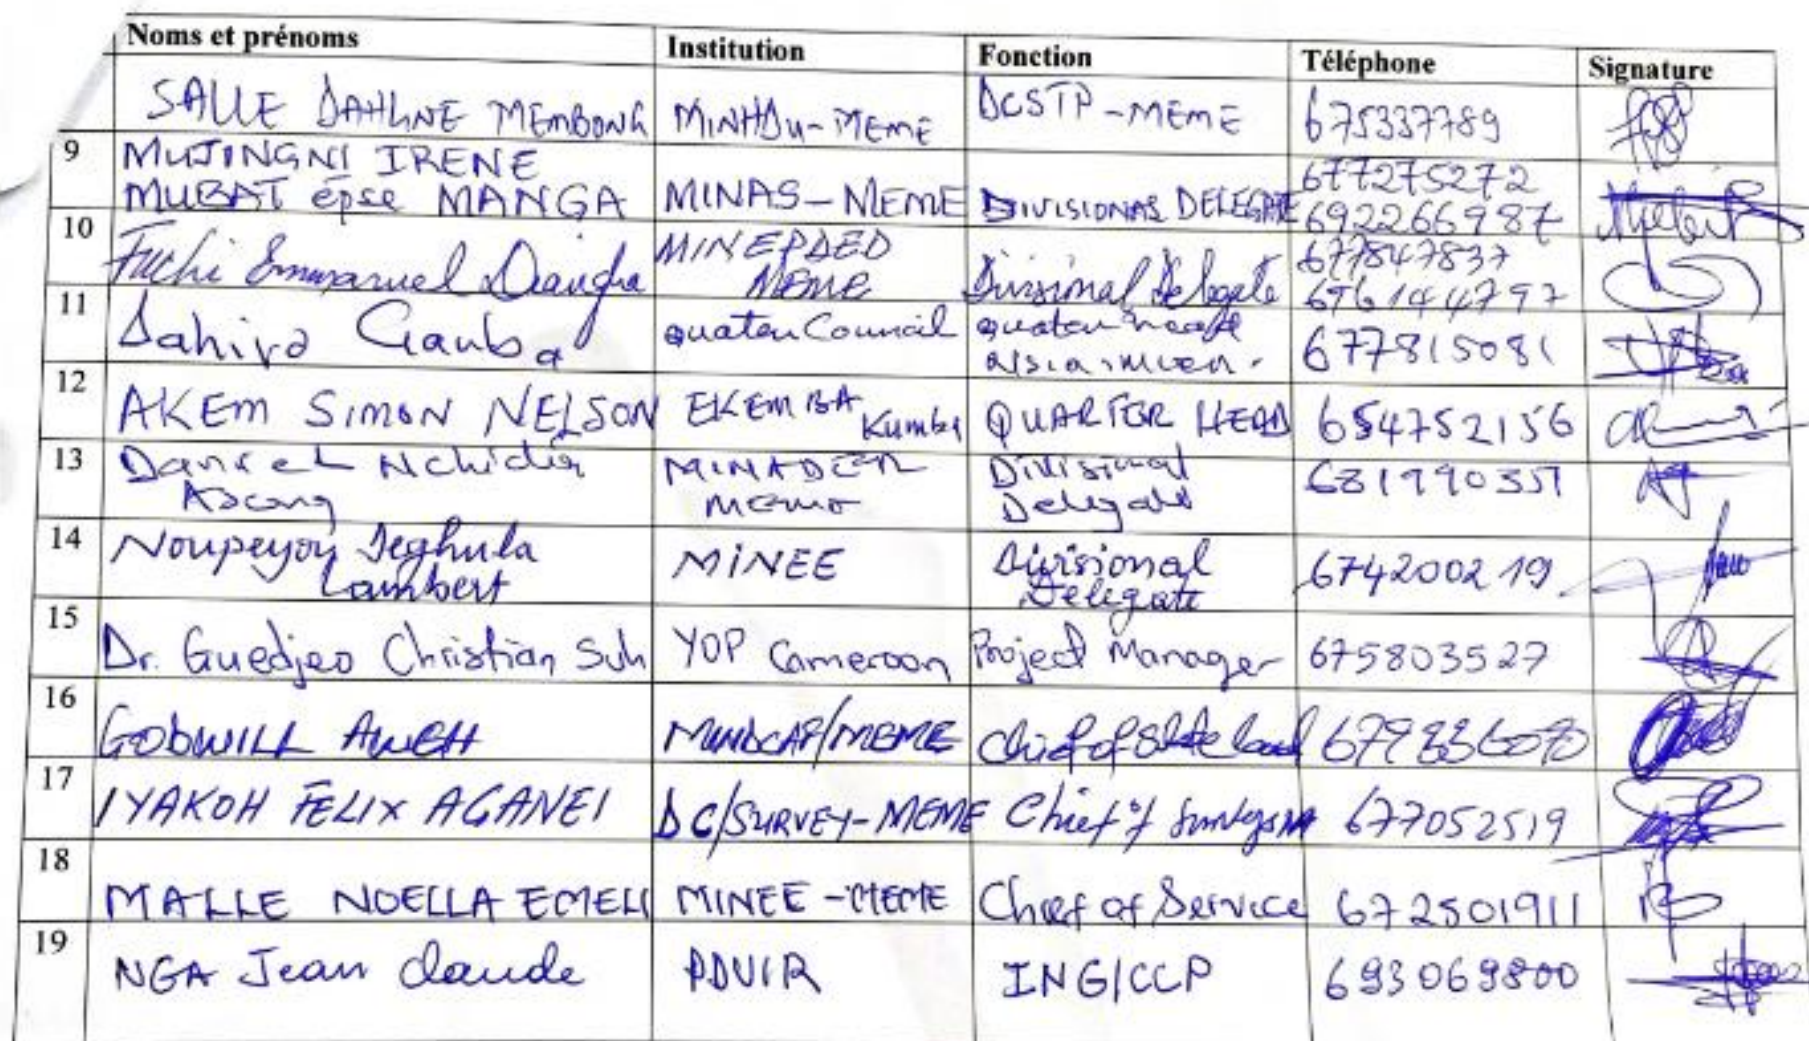 Noms et prénoms Institution Fonction Téléphone Signature
SALLE DAHLINE MEMBONG MINHDU-MEME DCSTP-MEME 675337789
9 MUJINGNI IRENE
MUBAT épse MANGA MINAS-MEME DIVISIONAL DELEGATE 677275272
692266987
10 Fuchi Emmanuel MINEPDED
MEME Divisional Delegate 677847837
11 Dahiro Gauba quater Council quater 677815081
12 AKEM SIMON NELSON EKEMBA Kumba QUARTER HEAD 654752156
13 Nchidia
MINADER Divisional
Delegate
14 Noupeyou
Lambert MINEE Divisional
Delegate 674200219
15 Dr. Guedjeo Christian Suh YOP Cameroon Project Manager 675803527
16 GODWILL AWAH MINDCAF/MEME Chief of State land
17 IYAKOH FELIX AGANEI DC/SURVEY-MEME Chief of 677052519
18 MALLE NOELLA EMELI MINEE-MEME Chief of Service 672501911
19 NGA Jean Claude PDVIR ING/CCP 693069800